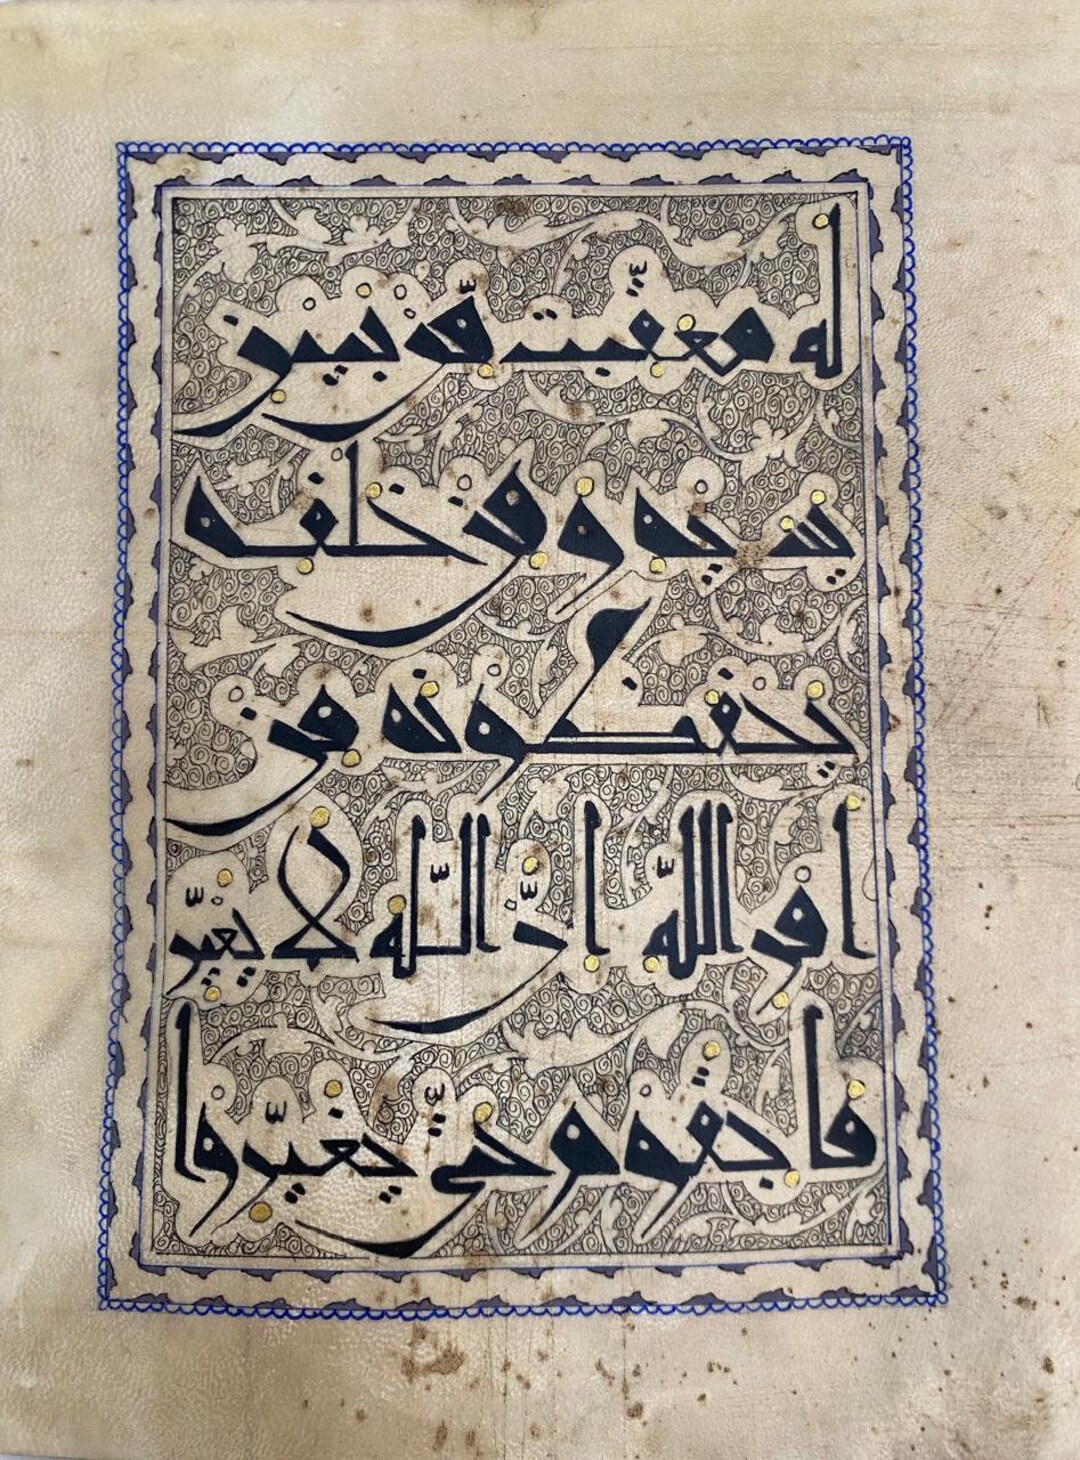 له معقبت من بين
يديه ومن خلفه
يحفظونه من
امر الله ان الله لا يغير
ما بقوم حتى يغيروا